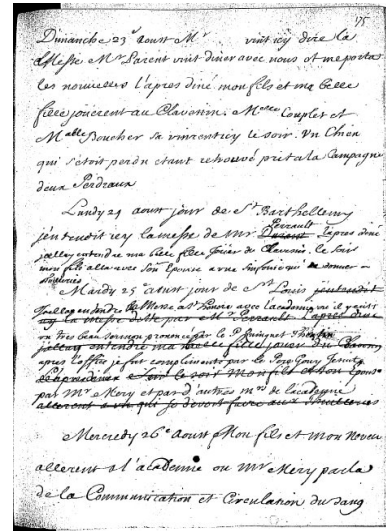 75
Dimanche 23e aoust Mr vint icy dire la
Messe Mr Parent vint diner avec nous et me porta
les nouvelles l'apres diné mon fils et ma belle
fille jouerent au Clavecin. Melle Couplet et
Madlle Boucher vinrent icy le soir. Vn Chien
qui s'étoit perdu etant retrouvé prit a la Campagne
deux Perdraux
Lundy 24 aoust jour de St Barthellemy
j'entendit icy la messe de Mr Perrault l'apres diné
j'allay entendre ma belle fille jouer du Clavecin. le soir
mon fils alla avec son Epouse a vne simfonie
Mardy 25 aoust jour de St Louis j'entendit
la Messe avec l'academie
la Messe par Mr l'apres diné
vn tres beau sermon prononcé par le P.
ma belle fille jouer du Clavecin
apres l'office je fut complimenté par le Pere Gouy Jesuite
le soir mon fils et son Epouse
par Mr Mery et par d'autres mrs de l'academie
allerent aux Thuilleries
Mercredy 26e Aoust Mon fils et mon Neveu
allerent a l'academie ou Mr Mery parla
de la Communication et Circulation du sang